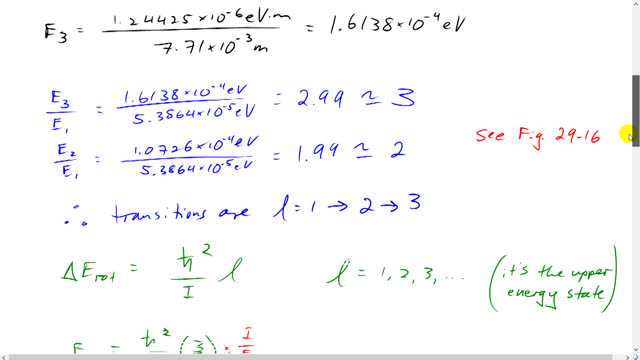 E₃ = 1.24425×10⁻⁶ eV·m / 7.71×10⁻³ m = 1.6138×10⁻⁴ eV
E₃/E₁ = 1.6138×10⁻⁴ eV / 5.3864×10⁻⁵ eV = 2.99 ≃ 3
See Fig. 29-16
E₂/E₁ = 1.0726×10⁻⁴ eV / 5.3864×10⁻⁵ eV = 1.99 ≃ 2
∴ transitions are l = 1 → 2 → 3
ΔE_rot = ħ²/I l l = 1, 2, 3, ... (it's the upper energy state)